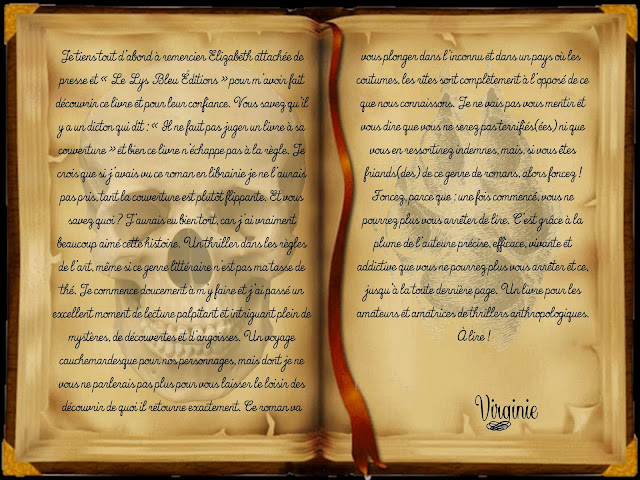 Je tiens tout d'abord à remercier Elizabeth attachée de
presse et « Le Lys Bleu Éditions » pour m'avoir fait
découvrir ce livre et pour leur confiance. Vous savez qu'il
y a un dicton qui dit : « Il ne faut pas juger un livre à sa
couverture » et bien ce livre n'échappe pas à la règle. Je
crois que si j'avais vu ce roman en librairie je ne l'aurais
pas pris, tant la couverture est plutôt flippante. Et vous
savez quoi ? J'aurais eu bien tort, car j'ai vraiment
beaucoup aimé cette histoire. Un thriller dans les règles
de l'art, même si ce genre littéraire n'est pas ma tasse de
thé. Je commence doucement à m'y faire et j'ai passé un
excellent moment de lecture palpitant et intriguant plein de
mystères, de découvertes et d'angoisses. Un voyage
cauchemardesque pour nos personnages, mais dont je ne
vous ne parlerais pas plus pour vous laisser le loisir des
découvrir de quoi il retourne exactement. Ce roman va
vous plonger dans l'inconnu et dans un pays où les
coutumes, les rites sont complètement à l'opposé de ce
que nous connaissons. Je ne vais pas vous mentir et
vous dire que vous ne serez pas terrifiés(ées) ni que
vous en ressortirez indemnes, mais, si vous êtes
friands(des) de ce genre de romans, alors foncez !
Foncez, parce que : une fois commencé, vous ne
pourrez plus vous arrêter de lire. C'est grâce à la
plume de l'auteure précise, efficace, vivante et
addictive que vous ne pourrez plus vous arrêter et ce,
jusqu'à la toute dernière page. Un livre pour les
amateurs et amatrices de thrillers anthropologiques.
A lire !
Virginie